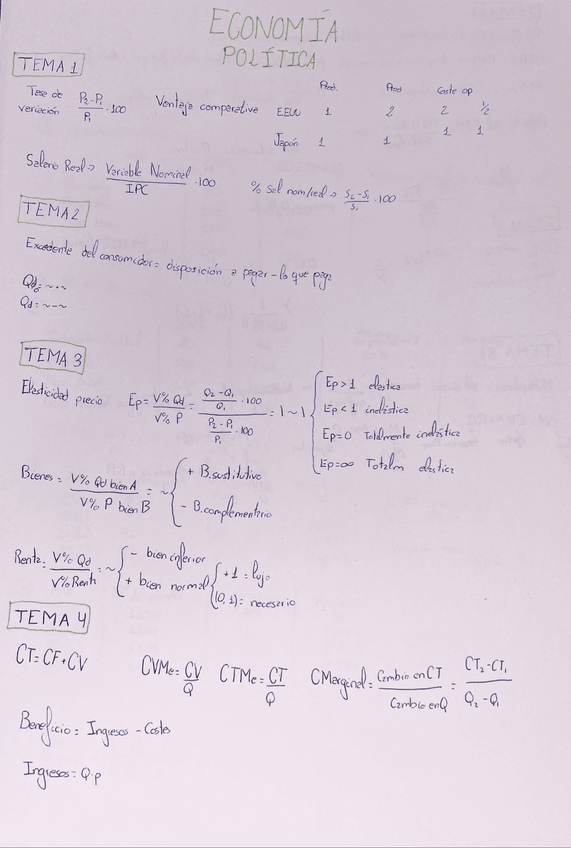 ECONOMÍA
POLÍTICA
TEMA 1
Tasa de variación P₂-P₁/P₁ · 100
Ventaja comparativa
Prod. Prod Coste op
EEUU 1 2 2 1/2
Japón 1 1 1 1
Salario Real → Variable Nominal/IPC · 100
% Sal nom/real → S₂-S₁/S₁ · 100
TEMA 2
Excedente del consumidor = disposición a pagar - lo que paga
Qd = ~-~
TEMA 3
Elasticidad precio Ep = V% Qd/V% P = (Q₂-Q₁/Q₁ · 100)/(P₂-P₁/P₁ · 100) = | ~ |
Ep > 1 elastica
Ep < 1 inelástica
Ep = 0 Totalmente inelástica
Ep = ∞ Totalm elastica
Bienes = V% Qd bien A/V% P bien B = ~
+ B. sustitutivo
- B. complementario
Renta = V% Qd/V% Renta = ~
- bien inferior
+ bien normal
+1 = lujo
(0,1) = necesario
TEMA 4
CT = CF + CV
CVMe = CV/Q CTMe = CT/Q CMarginal = Cambio en CT/Cambio en Q = CT₂-CT₁/Q₂-Q₁
Beneficio = Ingresos - Costes
Ingresos = Q·p